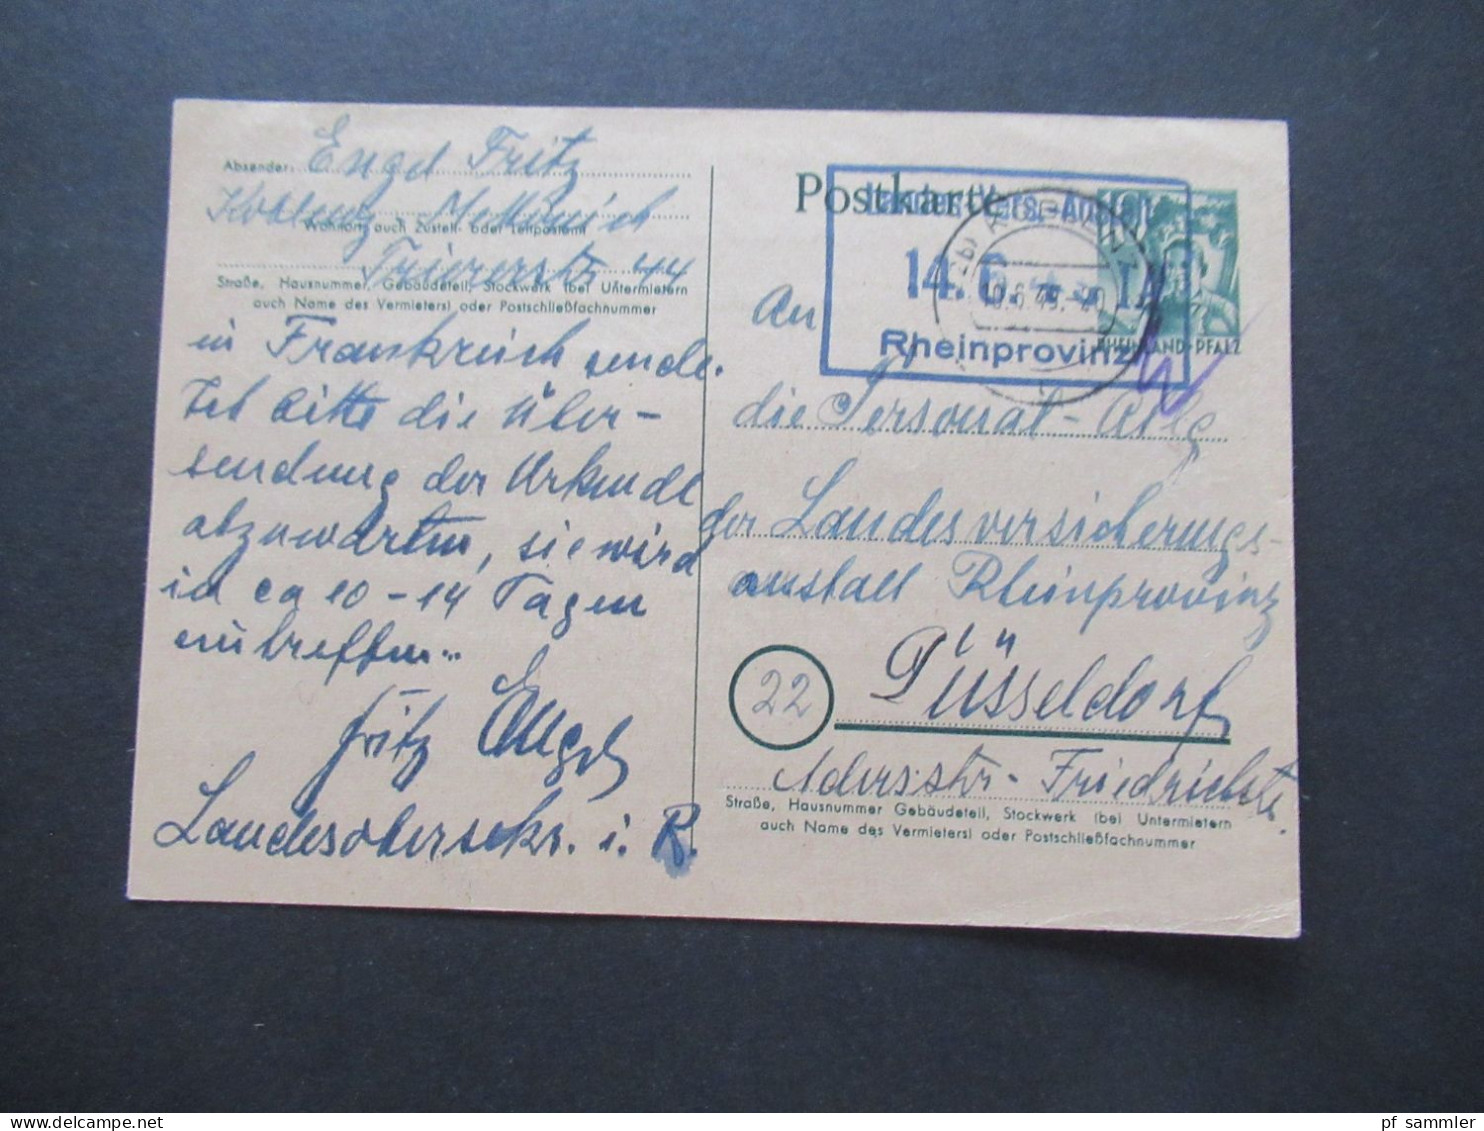 Absender: Engel Fritz
Koblenz Metternich
Wohnort, auch Zustell- oder Leitpostamt
Triererstr 44
Straße, Hausnummer, Gebäudeteil, Stockwerk (bei Untermietern
auch Name des Vermieters) oder Postschließfachnummer
in Frankreich sende.
Ich bitte die Über-
sendung der Urkunde
abzuwarten, sie wird
in ca 10-14 Tagen
eintreffen..
Fritz Engel
Landesobersekr. i. R.
Postkarte
Landes-Vers.-Anstalt
14. 6.
10.6.49.
Rheinprovinz
RHEINLAND-PFALZ
An
die Personal-Abtlg
der Landesversicherungs-
anstalt Rheinprovinz
22
Düsseldorf
Adersstr- Friedrichstr.
Straße, Hausnummer Gebäudeteil, Stockwerk (bei Untermietern
auch Name des Vermieters) oder Postschließfachnummer
pf sammler
www.delcampe.net